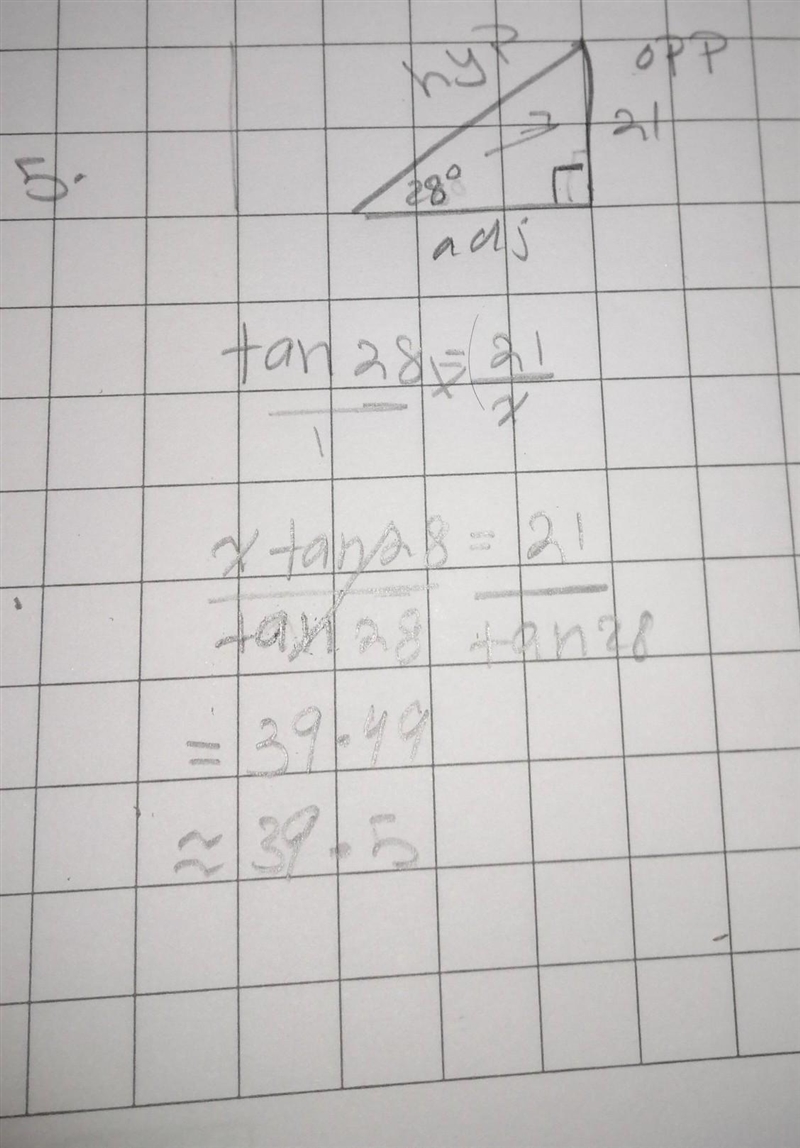 hyp
opp
21
5.
28°
adj
tan 28 = 21
1 x
x tan 28 = 21
tan 28 tan 28
= 39.49
≈ 39.5